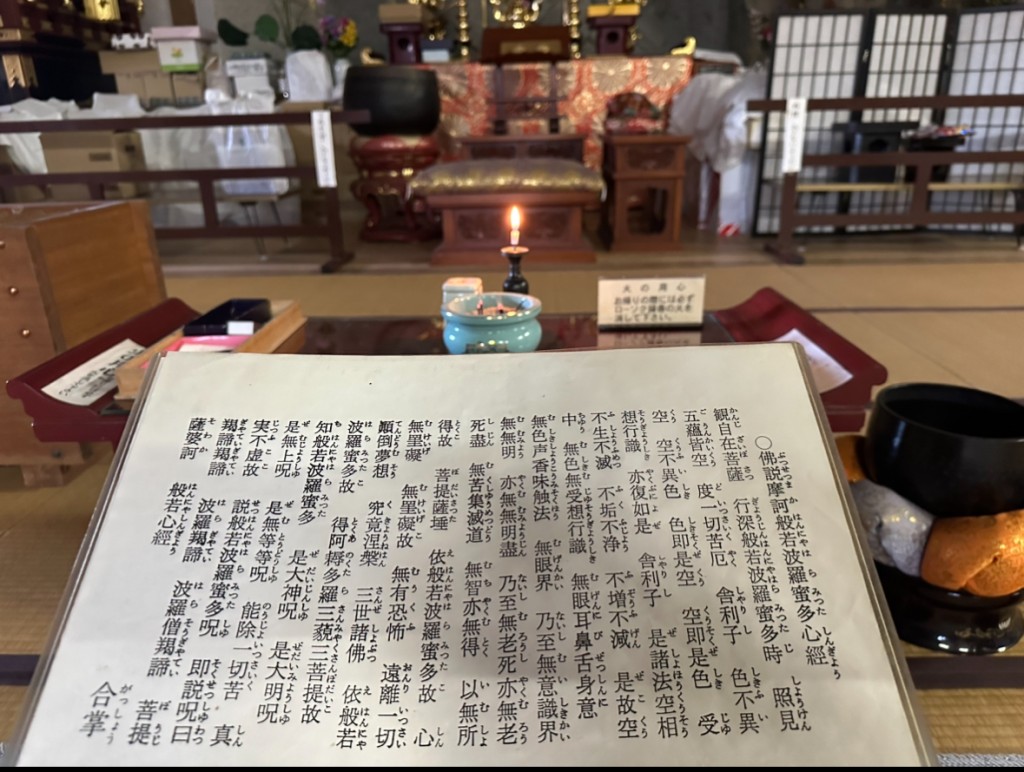 ○佛説摩訶般若波羅蜜多心經
観自在菩薩 行深般若波羅蜜多時 照見
五蘊皆空 度一切苦厄 舎利子 色不異
空 空不異色 色即是空 空即是色 受
想行識 亦復如是 舎利子 是諸法空相
不生不滅 不垢不浄 不増不減 是故空
中 無色無受想行識 無眼耳鼻舌身意
無色声香味触法 無眼界 乃至無意識界
無無明 亦無無明盡 乃至無老死亦無老
死盡 無苦集滅道 無智亦無得 以無所
得故 菩提薩埵 依般若波羅蜜多故 心
無罣礙 無罣礙故 無有恐怖 遠離一切
顚倒夢想 究竟涅槃 三世諸佛 依般若
波羅蜜多故 得阿耨多羅三藐三菩提故
知般若波羅蜜多 是大神呪 是大明呪
是無上呪 是無等等呪 能除一切苦 真
実不虚故 説般若波羅蜜多呪 即説呪曰
羯諦羯諦 波羅羯諦 波羅僧羯諦 菩提
薩婆訶 般若心經
合掌
火の用心
お帰りの際には必ず
ローソク線香の火を
消して下さい。